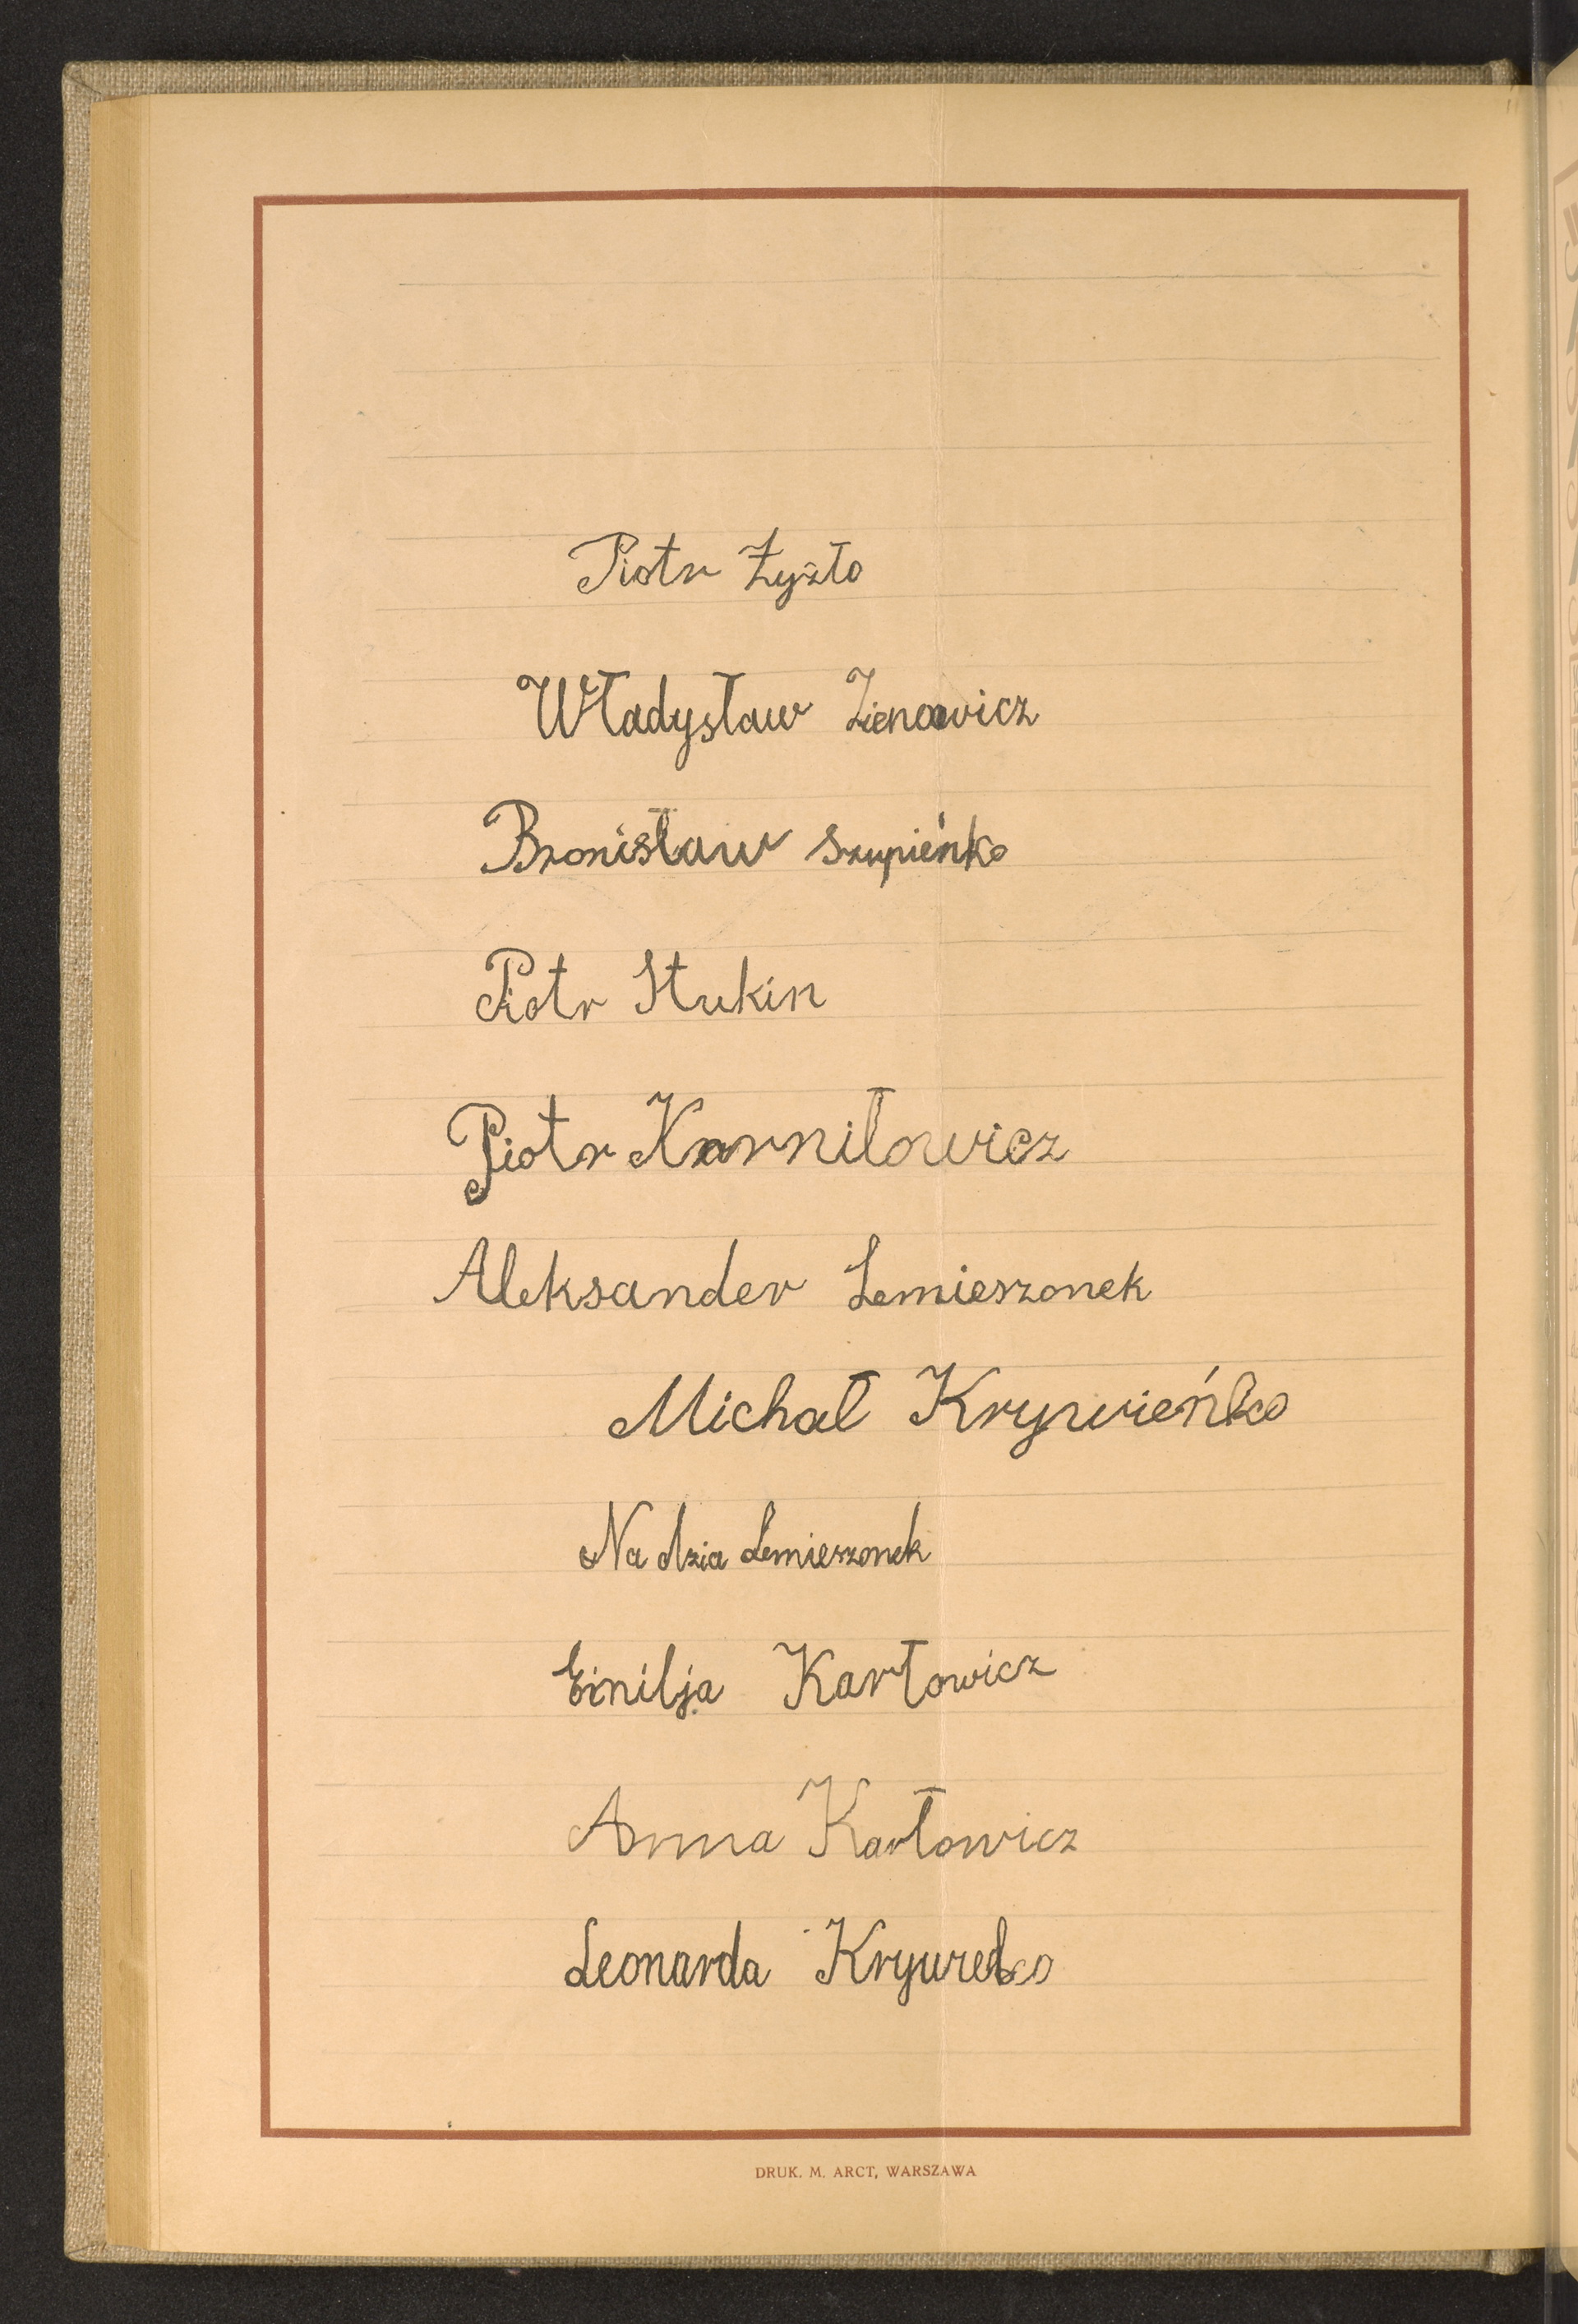 Piotr Żyzło
Władysław Zienowicz
Bronisław Szupieńko
Piotr Stukin
Piotr Karniłowicz
Aleksander Lemieszonek
Michał Krywieńko
Nadzia Lemieszonek
Emilja Karłowicz
Anna Karłowicz
Leonarda Krywelko
DRUK. M. ARCT, WARSZAWA